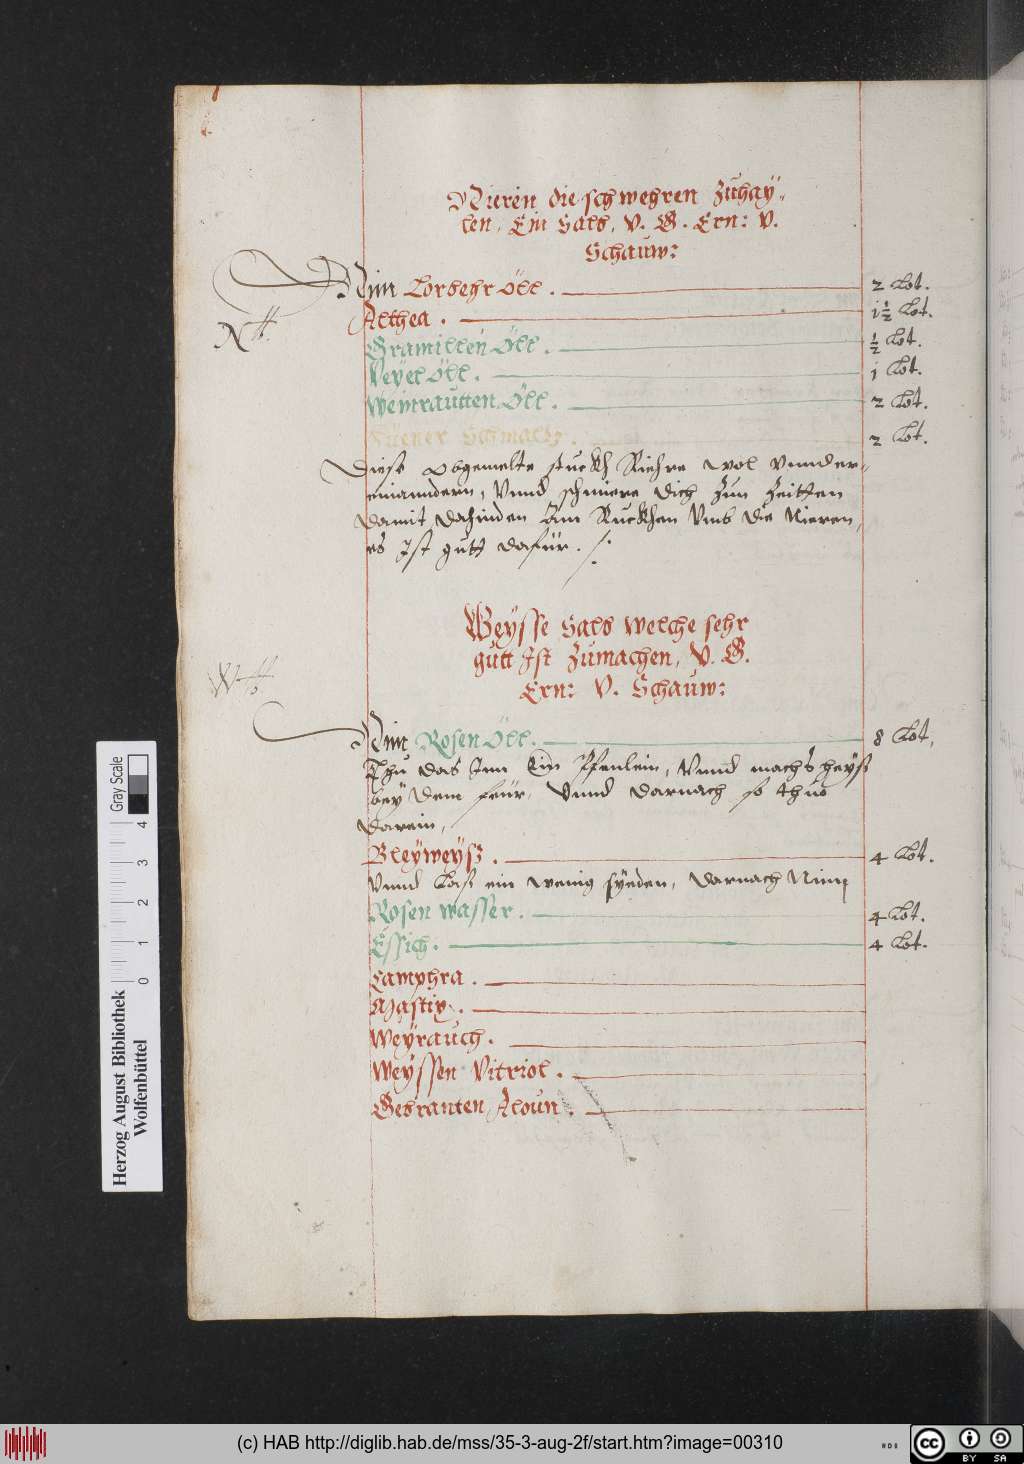 Nieren die schwehren Zuhaÿ-
len, Ein Salb, V. G. Ern: V.
Schauw:
Nim Lorbehr Öll. 2 Lot.
Althea. 1½ Lot.
Gramillen Öll. ½ Lot.
Veÿel Öll. 1 Lot.
Weinrautten Öll. 2 Lot.
Hüener Schmaltz. 2 Lot.
Diese obgemelte stuckh Riehre wol vnnder-
einanndern, Vnnd schmiere dich Zun Zeitten
damit dahinden Am Ruckhen Vmb die Nieren,
es Ist gutt dafür. /.
Weÿsse Salb welche sehr
gutt Ist Zumachen, V. G.
Ern: V. Schauw:
Nim Rosen Öll. 8 Lot,
Thu das Inn Ein Pfenlein, Vnnd mach's heÿß
beÿ dem feür, Vnnd darnach so thue
darein,
Bleÿweÿß. 4 Lot.
Vnnd Laß ein wenig sÿeden, darnach Nimp
Rosen wasser. 4 Lot.
Essich. 4 Lot.
Camphra.
Mastix.
Weÿrauch.
Weÿssen Vitriol.
Gebranten Aloun.
Herzog August Bibliothek
Wolfenbüttel
Gray Scale
0 1 2 3 4
(c) HAB http://diglib.hab.de/mss/35-3-aug-2f/start.htm?image=00310
cc
BY SA